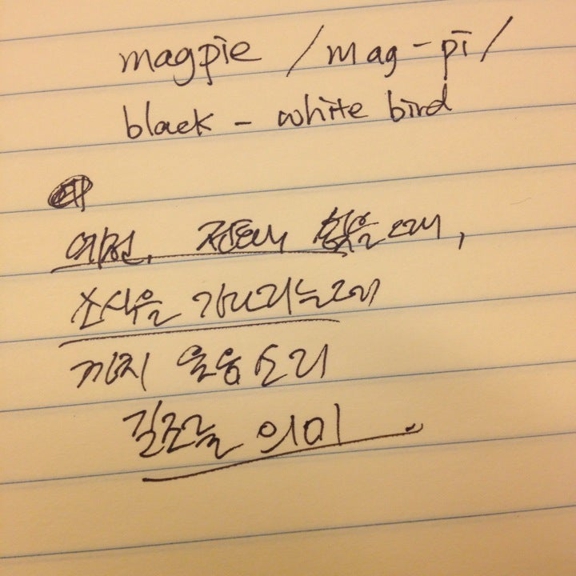 magpie /mag-pī/
black - white bird
예전, 전화 없을 때,
소식을 기다리는데
까치 울음소리
길조를 의미.